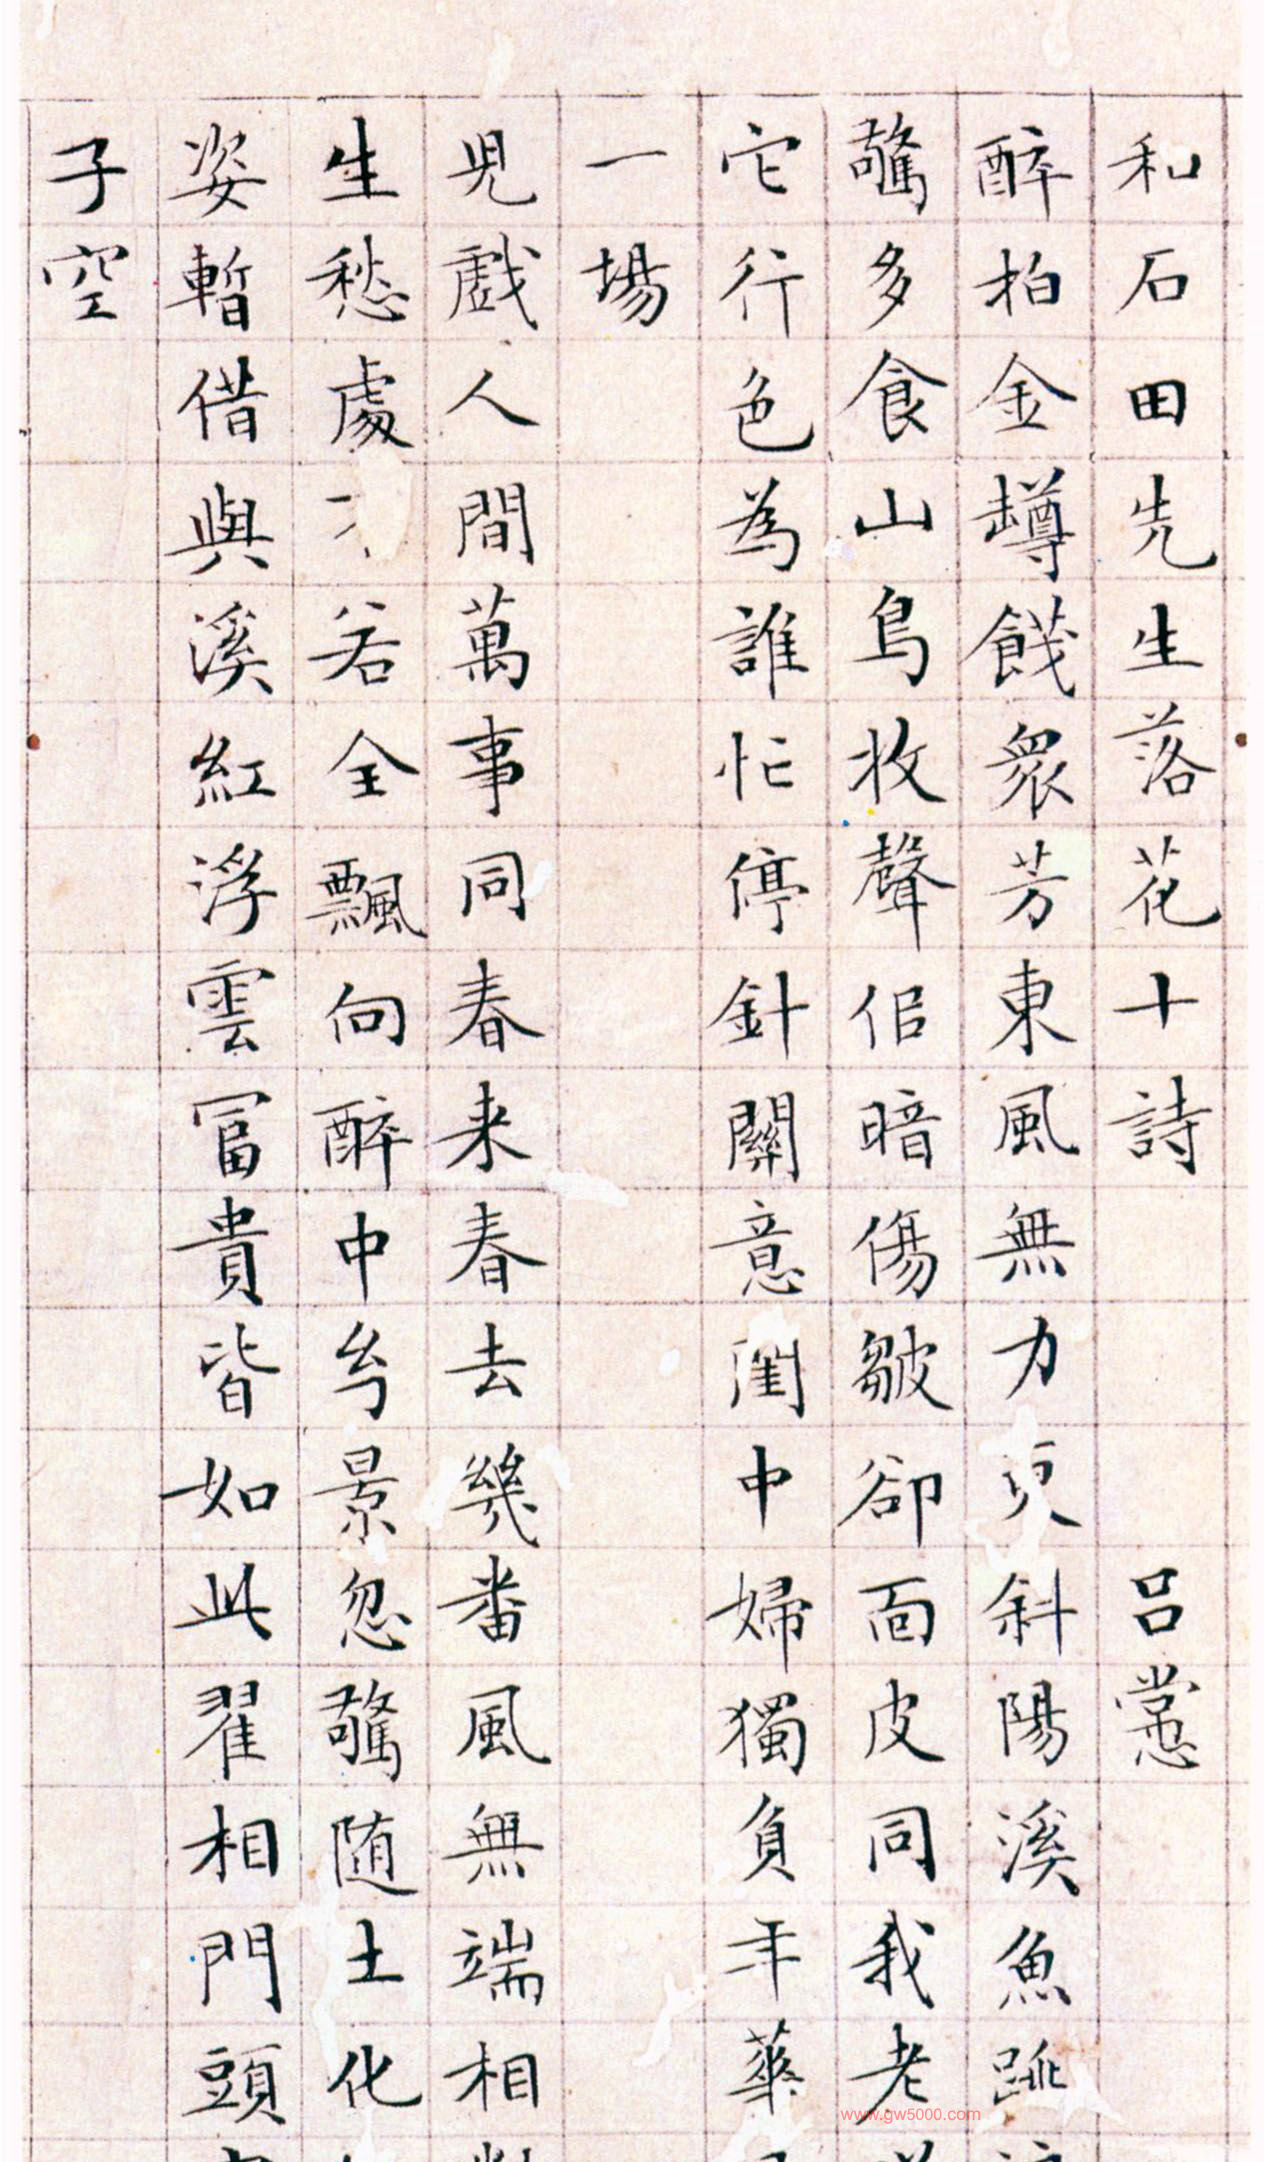 和石田先生落花十詩 呂㦂
醉拍金罇餞衆芳東風無力更斜陽溪魚跳
驚多食山鳥收聲侶暗傷皺卻面皮同我老
它行色為誰忙停針關意閨中婦獨負年華
一場
児戲人間萬事同春来春去幾番風無端相
生愁處若全飄向醉中兮景忽驚随土化
姿暫借與溪紅浮雲冨貴皆如此翟相門頭
子空
www.gw5000.com